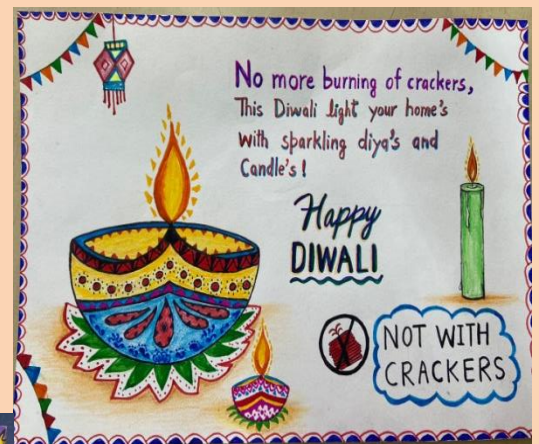 No more burning of crackers,
This Diwali light your home's
with sparkling diya's and
Candle's!
Happy
DIWALI
NOT WITH
CRACKERS